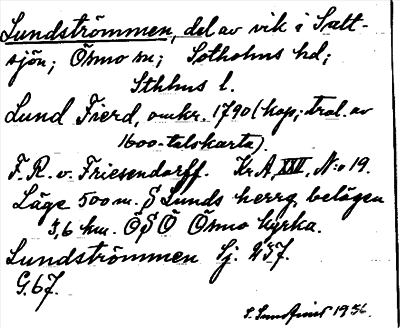 Lundströmmen, del av vik i Sätt-
sjön; Ösmo sn; Sotholms hd;
Sthlms l.
Lund Fierd, omkr. 1790 (kop; tral. av
1600-talskarta).
F. R. v. Friesendorff. Kr A, XXVI, N:o 19.
Läge 500 m. S Lunds herrg. belägen
3,6 km. ÖSÖ Ösmo kyrka.
Lundströmmen Sj: 457.
G. 67.
1956.